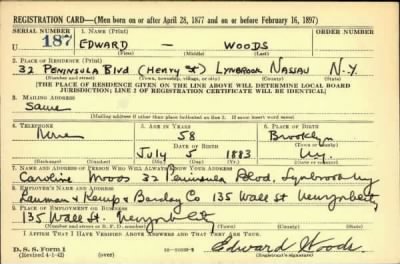 REGISTRATION CARD—(Men born on or after April 28, 1877 and on or before February 16, 1897)
SERIAL NUMBER 1. NAME (Print) ORDER NUMBER
U 187 EDWARD — WOODS
(First) (Middle) (Last)
2. PLACE OF RESIDENCE (Print)
32 PENINSULA BLVD (HENRY ST) LYNBROOK NASSAU N.Y.
(Number and street) (Town, township, village, or city) (County) (State)
[THE PLACE OF RESIDENCE GIVEN ON THE LINE ABOVE WILL DETERMINE LOCAL BOARD
JURISDICTION; LINE 2 OF REGISTRATION CERTIFICATE WILL BE IDENTICAL]
3. MAILING ADDRESS
Same
[Mailing address if other than place indicated on line 2. If same insert word same]
4. TELEPHONE 5. AGE IN YEARS 6. PLACE OF BIRTH
None 58 Brooklyn
DATE OF BIRTH (Town or county)
July 5 1883 NY.
(Exchange) (Number) (Mo.) (Day) (Yr.) (State or country)
7. NAME AND ADDRESS OF PERSON WHO WILL ALWAYS KNOW YOUR ADDRESS
Caroline Woods 32 Peninsula Blvd. Lynbrook NY
8. EMPLOYER'S NAME AND ADDRESS
Lanman & Kemp & Barclay Co 135 Wall St New York City
9. PLACE OF EMPLOYMENT OR BUSINESS
135 Wall St. New York City
(Number and street or R. F. D. number) (Town) (County) (State)
I AFFIRM THAT I HAVE VERIFIED ABOVE ANSWERS AND THAT THEY ARE TRUE.
D. S. S. Form 1
(Revised 4-1-42) (over)
Edward Woods
(Registrant's signature)